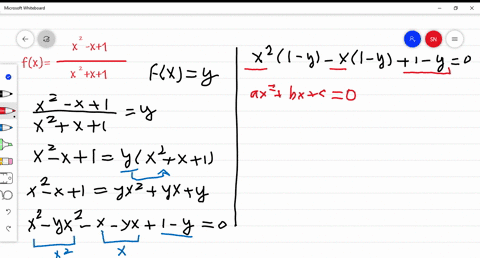 Microsoft Whiteboard
SN
f(x)= x²-x+1 / x²+x+1
F(x)=y
x²-x+1 / x²+x+1 =y
x²-x+1=y(x²+x+1)
x²-x+1=yx²+yx+y
x²-yx²-x-yx+1-y=0
x² x
x²(1-y)-x(1-y)+1-y=0
ax²+bx+c=0